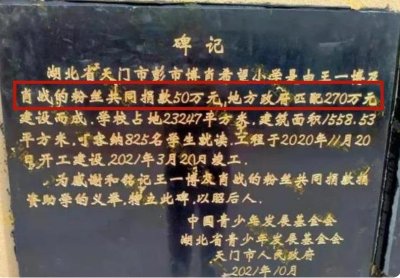 碑记
湖北省天门市彭市博肖希望小学是由王一博及
肖战的粉丝共同捐款50万元,地方政府匹配270万元
建设而成。学校占地23247平方米,建筑面积1558.53
平方米,可容纳825名学生就读。工程于2020年11月20
日开工建设2021年3月20日竣工。
为感谢和铭记王一博及肖战的粉丝共同捐款捐
资助学的义举,特立此碑,以昭后人。
中国青少年发展基金会
湖北省青少年发展基金会
天门市人民政府
2021年10月